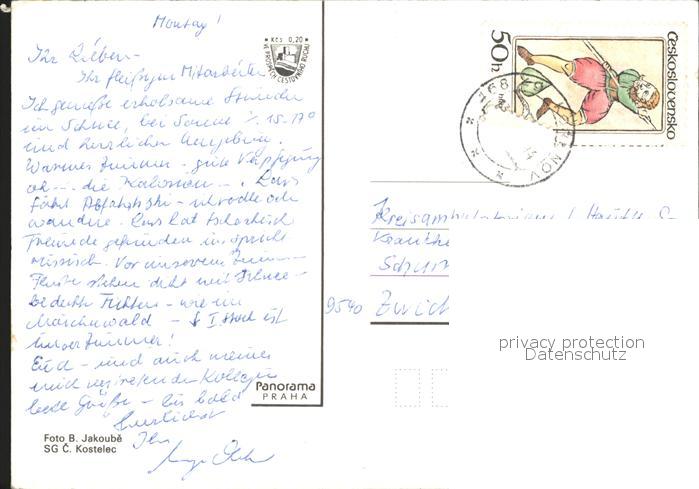 Montag!
Ihr Lieben –
Ihr fleißigen Mitarbeiter
Ich genieße erholsame Stunden
im Schnee, bei Sonne
und herrlicher Umgebung.
Warmes Zimmer – gute Verpflegung
oh – – die Kalorien – . Lars
fährt Abfahrtski – ich rodle oder
wandre. Lars hat tschechische
Freunde gefunden u. spricht
russisch. Vor unserem
Fenster stehen dicht mit Schnee –
bedeckte Fichten – wie im
Märchenwald – I. Stock ist
unser Zimmer!
Euch – und auch meinen
mich vertretenden Kollegen
beste Grüße – bis bald
Herzlichst
Ihre
Kčs 0,20
VE PROSPĚCH CESTOVNÍHO RUCHU
Panorama
PRAHA
Foto B. Jakoubě
SG Č. Kostelec
50h
Československo
9540 Zwick
privacy protection
Datenschutz